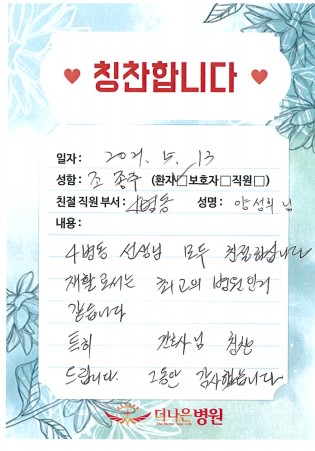 칭찬합니다
일자 : 2021. 5. 13
성함 : 조종주 (환자☑보호자☐직원☐)
친절 직원 부서 : 4병동 성명 : 양성희 님
내용 :
4병동 선생님 모두 친절하십니다
재활로서는 최고의 병원인거
같습니다
특히 간호사님 칭찬
드립니다. 그동안 감사했습니다
더나은병원